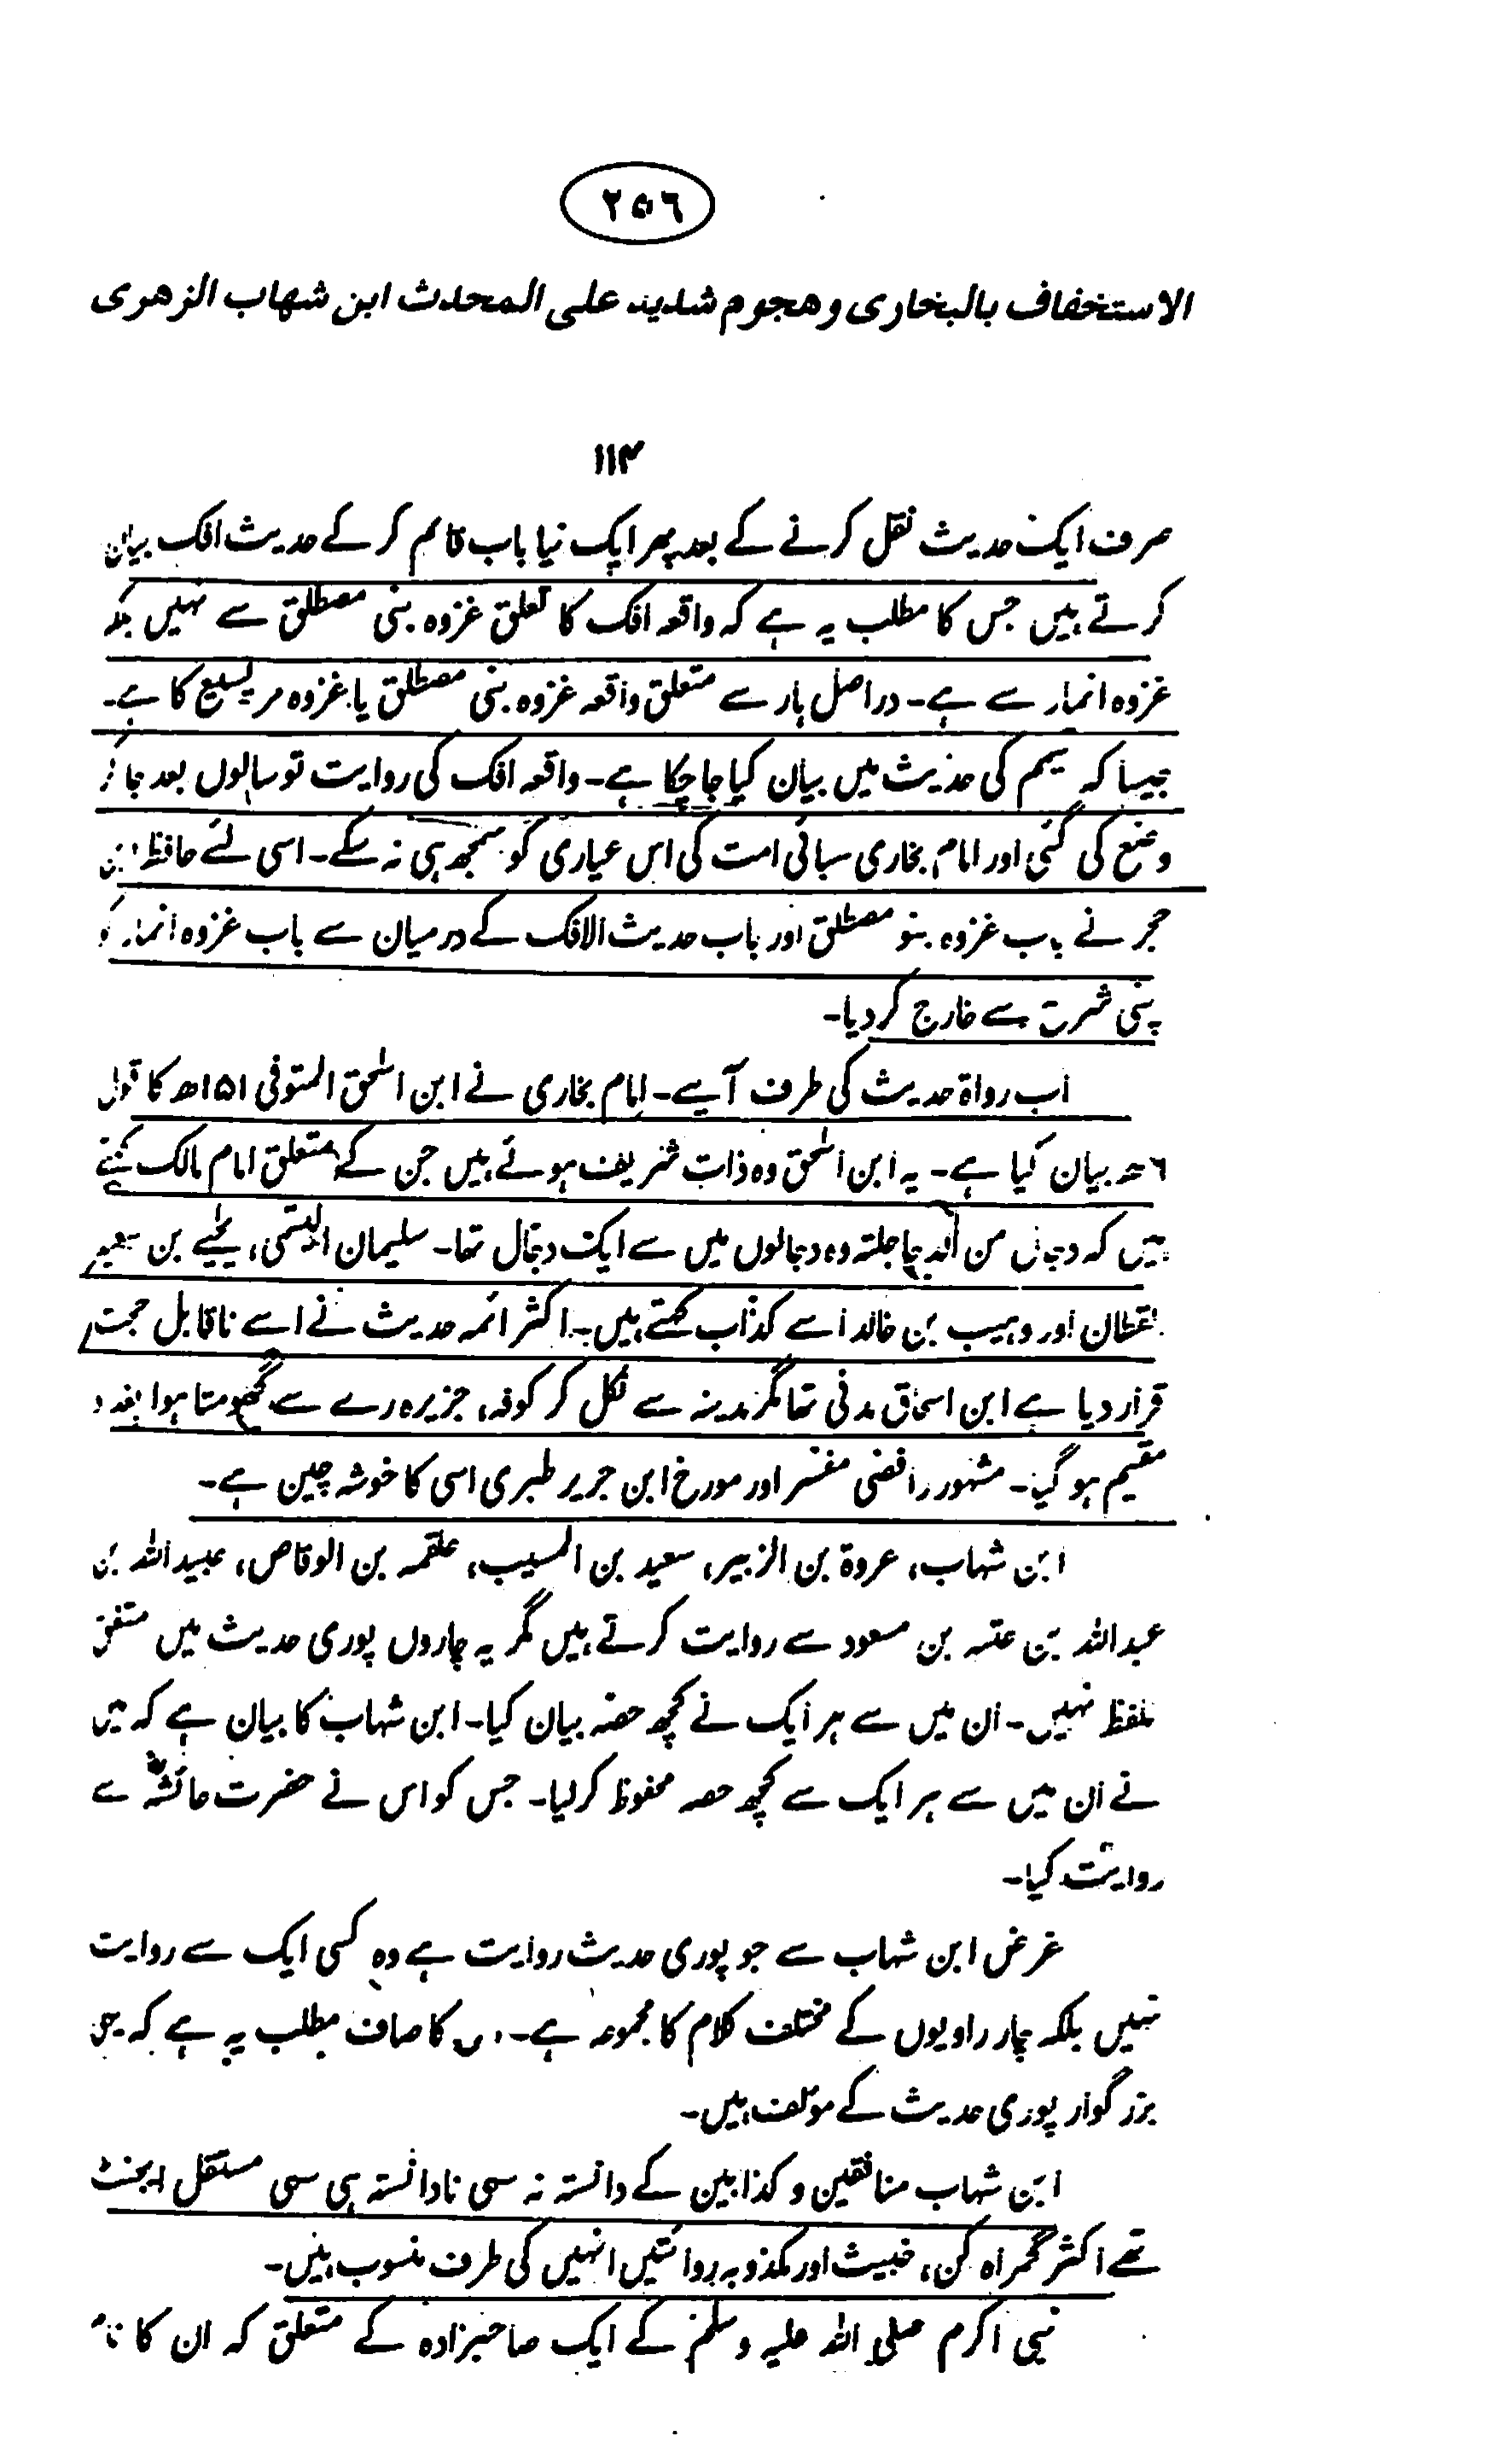 ۲۵٦
الاستخفاف بالبخاری وهجوم شدید علی المحدث ابن شهاب الزهری
۱۱۴
صرف ایک حدیث نقل کرنے کے بعد پھر ایک نیا باب قائم کر کے حدیث افک بیان
کرتے ہیں جس کا مطلب یہ ہے کہ واقعہ افک کا تعلق غزوہ بنی مصطلق سے نہیں بلکہ
غزوہ انمار سے ہے۔ دراصل ہار سے متعلق واقعہ غزوہ بنی مصطلق یا غزوہ مریسیع کا ہے۔
جیسا کہ تیمم کی حدیث میں بیان کیا جا چکا ہے۔ واقعہ افک کی روایت تو سالوں بعد جا کر
وضع کی گئی اور امام بخاری سبائی امت کی اس عیاری کو سمجھ ہی نہ سکے۔ اسی لئے حافظ ابن
حجر نے باب غزوہ بنو مصطلق اور باب حدیث الافک کے درمیان سے باب غزوہ انمار کو
پنی شرح سے خارج کر دیا۔
اب رواۃ حدیث کی طرف آیے۔ امام بخاری نے ابن اسحٰق المتوفی ۱۵۱ھ کا قول
٦ھ بیان کیا ہے۔ یہ ابن اسحٰق وہ ذات شریف ہوئے ہیں جن کے متعلق امام مالک کہتے
ہیں کہ دجال من الدجاجلتہ وہ دجالوں میں سے ایک دجال تھا۔ سلیمان التیمی، یحیٰے بن سعید
القطان اور وہیب بن خالد اسے کذاب کہتے ہیں۔ اکثر ائمہ حدیث نے اسے ناقابل حجت
قرار دیا ہے ابن اسحاق مدنی تھا مگر مدینہ سے نکل کر کوفہ، جزیرہ رے سے گھومتا ہوا بغداد
مقیم ہو گیا۔ مشہور رافضی مفسر اور مورخ ابن جریر طبری اسی کا خوشہ چین ہے۔
ابن شہاب، عروۃ بن الزبیر، سعید بن المسیب، علقمہ بن الوقاص، عبیداللہ بن
عبداللہ بن عتبہ بن مسعود سے روایت کرتے ہیں مگر یہ چاروں پوری حدیث میں متفق
للفظ نہیں۔ ان میں سے ہر ایک نے کچھ حصہ بیان کیا۔ ابن شہاب کا بیان ہے کہ میں
نے ان میں سے ہر ایک سے کچھ حصہ محفوظ کر لیا۔ جس کو اس نے حضرت عائشہؓ سے
روایت کیا۔
غرض ابن شہاب سے جو پوری حدیث روایت ہے وہ کسی ایک سے روایت
نہیں بلکہ چار راویوں کے مختلف کلام کا مجموعہ ہے۔ اس کا صاف مطلب یہ ہے کہ یہی
بزرگوار پوری حدیث کے مؤلف ہیں۔
ابن شہاب منافقین و کذابین کے دانستہ نہ سہی نادانستہ ہی سہی مستقل ایجنٹ
تھے اکثر گمراہ کن، خبیث اور مکذوبہ روائتیں انہیں کی طرف منسوب ہیں۔
نبی اکرم صلی اللہ علیہ وسلم کے ایک صاحبزادہ کے متعلق کہ ان کا نام